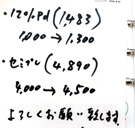 ・120%Pd (1,483)
1,000 → 1,300
・セミプレ (4,890)
4,000 → 4,500
よろしくお願い致します。